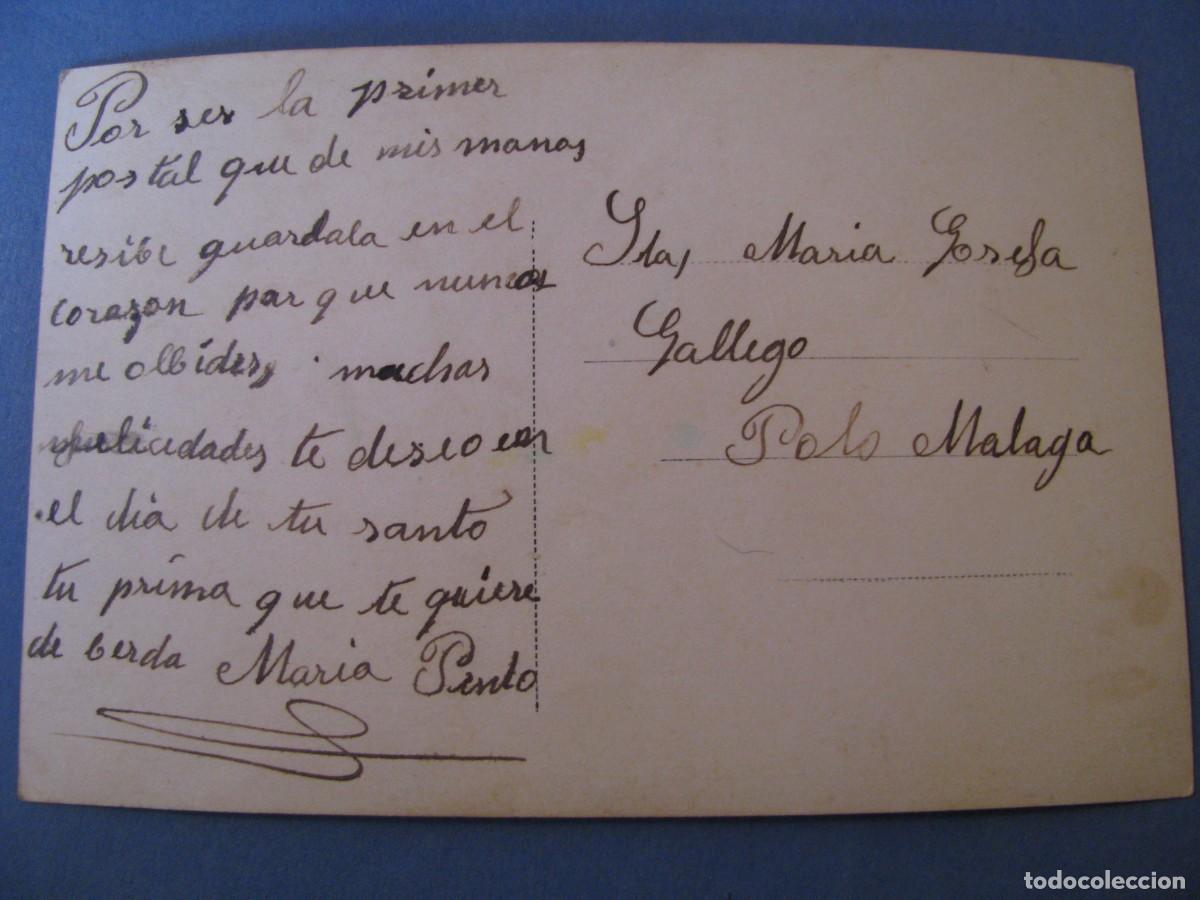 Por ser la primer
postal que de mis manos
resibe guardala en el
corazon par que nuncas
me olbides, muchas
felicidades te deseo en
el dia de tu santo
tu prima que te quiere
de berda Maria Pinto
Sta, Maria Gosefa
Gallego
Polo Malaga
todocoleccion